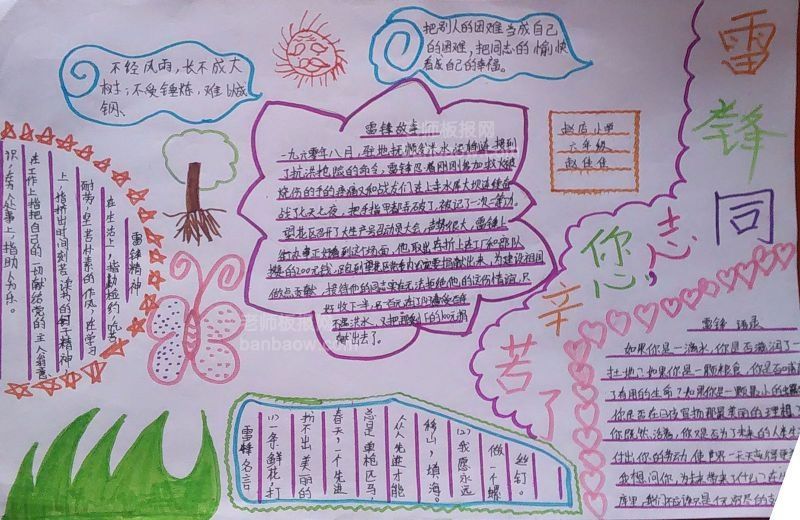 不经风雨，长不成大
树；不受锤炼，难以成
钢。
把别人的困难当成自己
的困难，把同志的愉快
看成自己的幸福。
雷锋同
志，
您
辛
苦
了
赵店小学
六年级
赵佳佳
雷锋故事
老师板报网
一九六零年八月，驻地抚顺发洪水，运输连接到
了抗洪抢险的命令，雷锋忍着刚刚参加救火被
烧伤的手的疼痛又和战友们在上寺水库大坝连续奋
战了七天七夜，
望花区召开了大生产号召动员大会，声势很大，雷锋上
街办事正好看到这个场面，他取出存折上在工厂和部队
攒的200元钱，
做点贡献，接待他的同志实在无法拒绝他的这份情谊，只
好收下一半，
遇洪水，
献出了。
老师板报网
banbaow.com
雷锋精神
在生活上，指勤俭节约、吃苦
耐劳，坚苦朴素的作风，在学习
上，指挤出时间刻苦读书的钉子精神，
在工作上指把自己的一切献给党的主人翁意
识，在为人处事上，指助人为乐。
雷锋名言
(1)一条鲜花，打
扮不出美丽的
春天，一个先进
总是单枪匹马，
众人先进才能
移山，填海。
(2)我愿永远
做一个螺
丝钉。
雷锋 语录
如果你是一滴水，你是否滋润了一
土地？如果你是一颗粮食，你是否哺育
了有用的生命？如果你是一颗最小的螺
你是否在日夜宣扬那最美丽的理想？
你既然活着，你又是否为了未来的人类生
付出你的劳动，使世界一天天变得更
我想问你，为未来带来了什么？在
库里，我们不应该只是个无穷尽的支